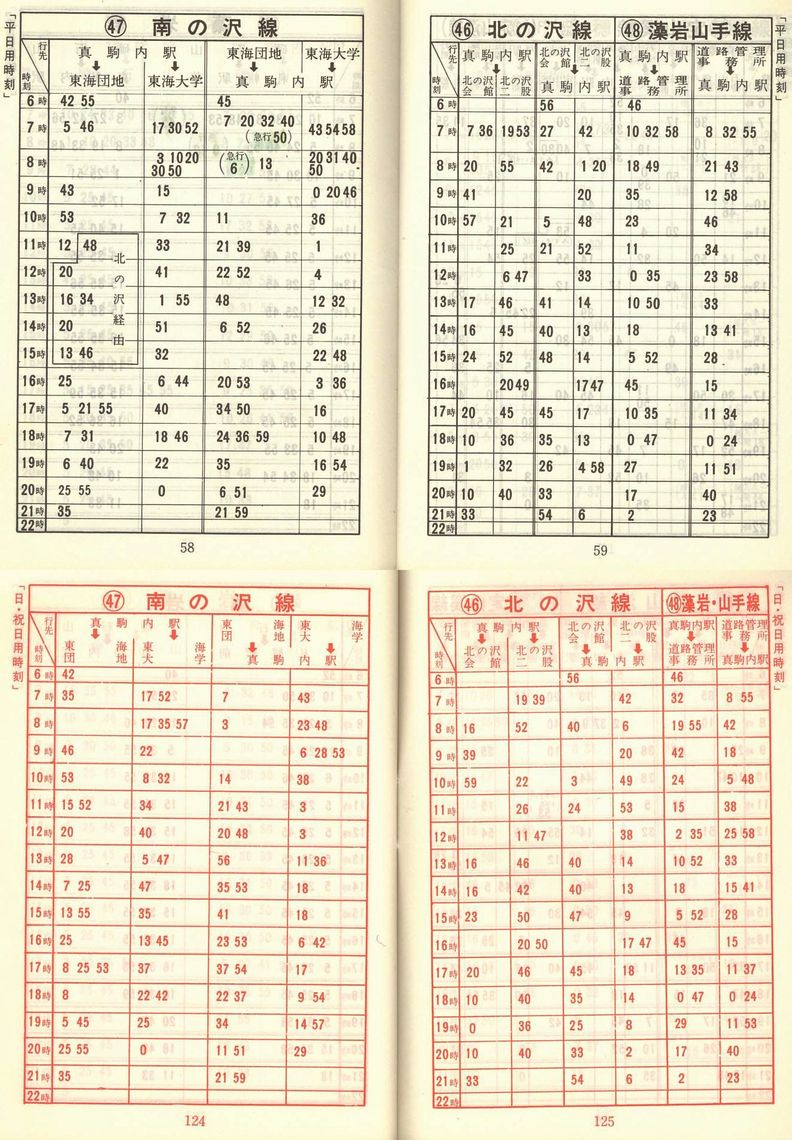 「平日用時刻」
㊼ 南の沢線
行先 時刻 真駒内駅 東海団地 真駒内駅 東海大学 東海団地 真駒内駅 東海大学 真駒内駅
6時 42 55 45
7時 5 46 17 30 52 7 20 32 40 (急行50) 43 54 58
8時 3 10 20 30 50 (急行6) 13 20 31 40 50
9時 43 15 0 20 46
10時 53 7 32 11 36
11時 12 48 33 21 39 1
12時 20 41 22 52 4
13時 16 34 1 55 48 12 32
14時 20 51 6 52 26
15時 13 46 32 22 48
北の沢経由
16時 25 6 44 20 53 3 36
17時 5 21 55 40 34 50 16
18時 7 31 18 46 24 36 59 10 48
19時 6 40 22 35 16 54
20時 25 55 0 6 51 29
21時 35 21 59
22時
58
㊻ 北の沢線 ㊽ 藻岩山手線
「平日用時刻」
行先 時刻 真駒内駅 北の沢会館 北の沢二股 北の沢会館 北の沢二股 真駒内駅 真駒内駅 道路管理事務所 道路管理事務所 真駒内駅
6時 56 46
7時 7 36 19 53 27 42 10 32 58 8 32 55
8時 20 55 42 1 20 18 49 21 43
9時 41 20 35 12 58
10時 57 21 5 48 23 46
11時 25 21 52 11 34
12時 6 47 33 0 35 23 58
13時 17 46 41 14 10 50 33
14時 16 45 40 13 18 13 41
15時 24 52 48 14 5 52 28
16時 20 49 17 47 45 15
17時 20 45 45 17 10 35 11 34
18時 10 36 35 13 0 47 0 24
19時 1 32 26 4 58 27 11 51
20時 10 40 33 17 40
21時 33 54 6 2 23
22時
59
「日・祝日用時刻」
㊼ 南の沢線
行先 時刻 真駒内駅 東海団地 東海大学 東海団地 東海大学 真駒内駅
6時 42
7時 35 17 52 7 43
8時 17 35 57 3 23 48
9時 46 22 6 28 53
10時 53 8 32 14 38
11時 15 52 34 21 43 3
12時 20 40 20 48 3
13時 28 5 47 56 11 36
14時 7 25 47 35 53 18
15時 13 55 35 41 18
16時 25 13 45 23 53 6 42
17時 8 25 53 37 37 54 17
18時 8 22 42 22 37 9 54
19時 5 45 25 34 14 57
20時 25 55 0 11 51 29
21時 35 21 59
22時
124
㊻ 北の沢線 ㊽ 藻岩・山手線
「日・祝日用時刻」
行先 時刻 真駒内駅 北の沢会館 北の沢二股 北の沢会館 北の沢二股 真駒内駅 真駒内駅 道路管理事務所 道路管理事務所 真駒内駅
6時 56 46
7時 19 39 42 32 8 55
8時 16 52 40 6 19 55 42
9時 39 20 42 18
10時 59 22 3 49 24 5 48
11時 26 24 53 15 38
12時 11 47 38 2 35 25 58
13時 16 46 40 14 10 52 33
14時 16 42 40 13 18 15 41
15時 23 50 47 9 5 52 28
16時 20 50 17 47 45 15
17時 20 46 45 18 13 35 11 37
18時 10 40 35 14 0 47 0 24
19時 0 36 25 8 29 11 53
20時 10 40 33 2 17 40
21時 33 54 6 2 23
22時
125